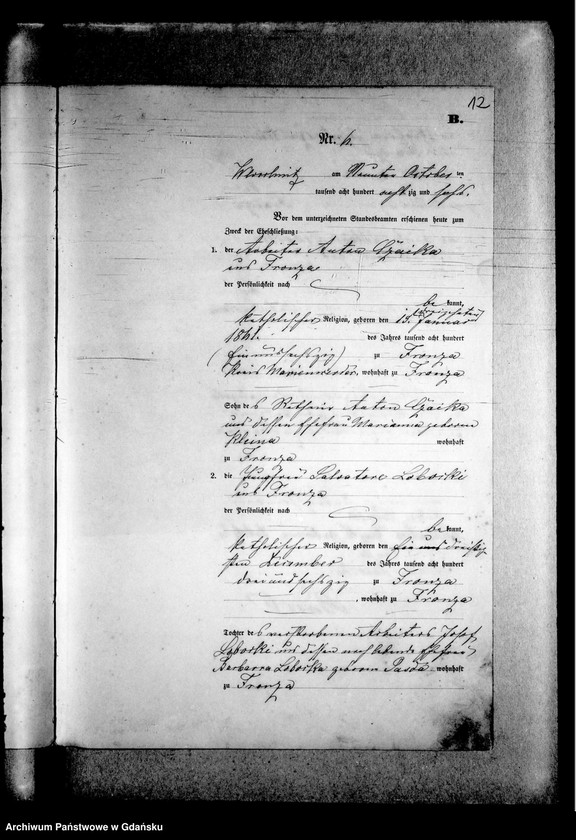 12
B.
Nr. 6.
am Neunten October ten
tausend acht hundert achtzig und sechs.
Vor dem unterzeichneten Standesbeamten erschienen heute zum
Zweck der Eheschließung:
1. der Arbeiter Anton Czaika
aus Fronza
der Persönlichkeit nach
be kannt,
katholischer Religion, geboren den 13. Januar
1861. des Jahres tausend acht hundert
(Einundsechszig) zu Fronza
Kreis Marienwerder, wohnhaft zu Fronza
Sohn des Anton Czaika
und dessen Ehefrau Marianna geborene
Kleina wohnhaft
zu Fronza
2. die Jungfrau Salvatore Loborki
aus Fronza
der Persönlichkeit nach
be kannt,
katholischer Religion, geboren den Ein und dreißig
sten Dezember des Jahres tausend acht hundert
dreiundsechszig zu Fronza
, wohnhaft zu Fronza
Tochter des verstorbenen Arbeiters Josef
Loborki und dessen noch lebende Ehefrau
Barbara Loborka geborene wohnhaft
zu Fronza
Archiwum Państwowe w Gdańsku